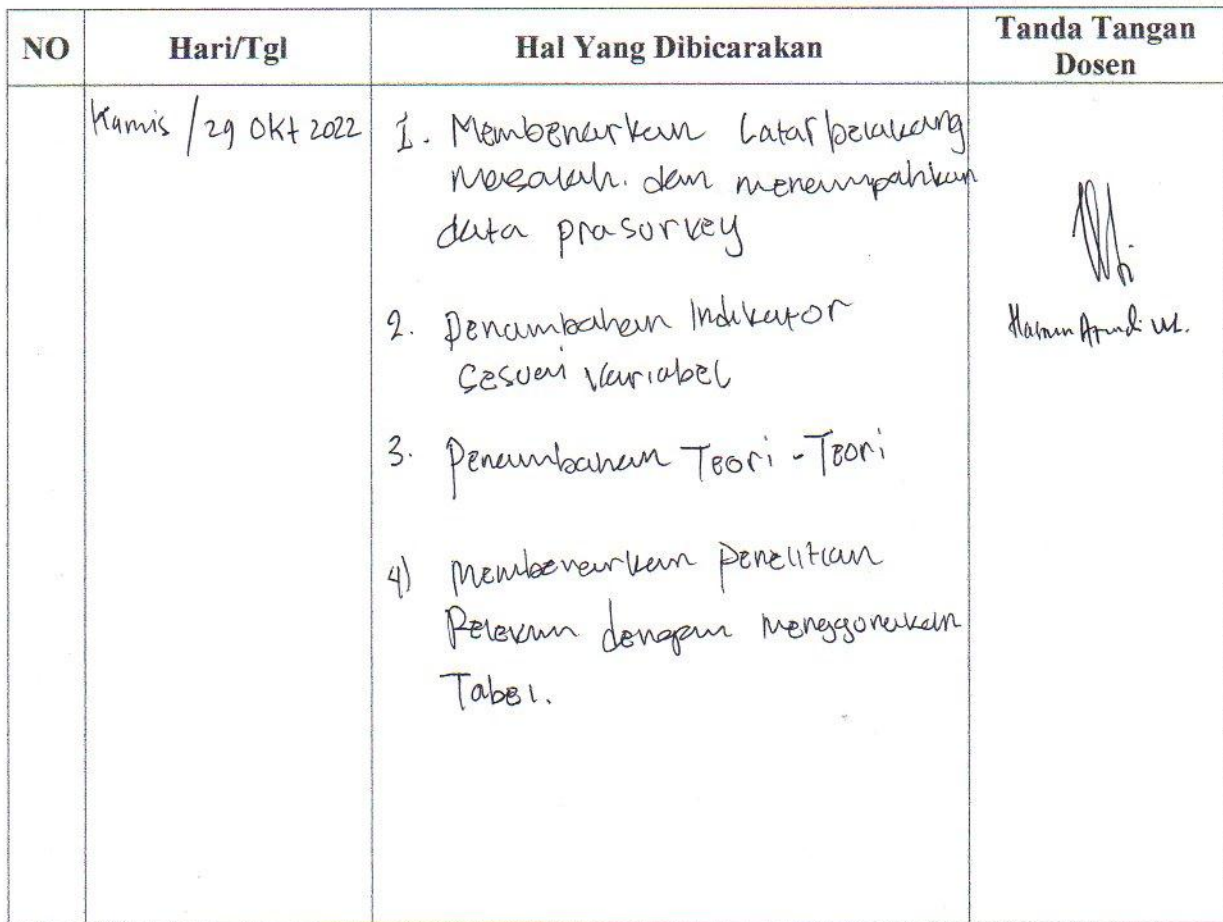 NO
Hari/Tgl
Hal Yang Dibicarakan
Tanda Tangan
Dosen
Kamis / 29 Okt 2022
1. Membenarkan Latar belakang
Masalah. dan menambahkan
data prasurvey
2. Penambahan Indikator
Sesuai Variabel
3. Penambahan Teori - Teori
4) Membenarkan penelitian
Relevan dengan menggunakan
Tabel.